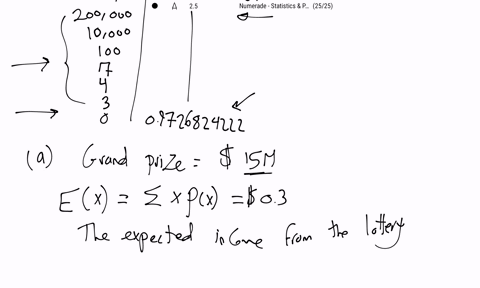 200,000
Δ 2.5 Numerade - Statistics & P... (25/25)
10,000
100
7
4
3
0 0.9726824222
(a) Grand prize = $ 15M
E(x) = Σ x P(x) = $0.3
The expected income from the lottery